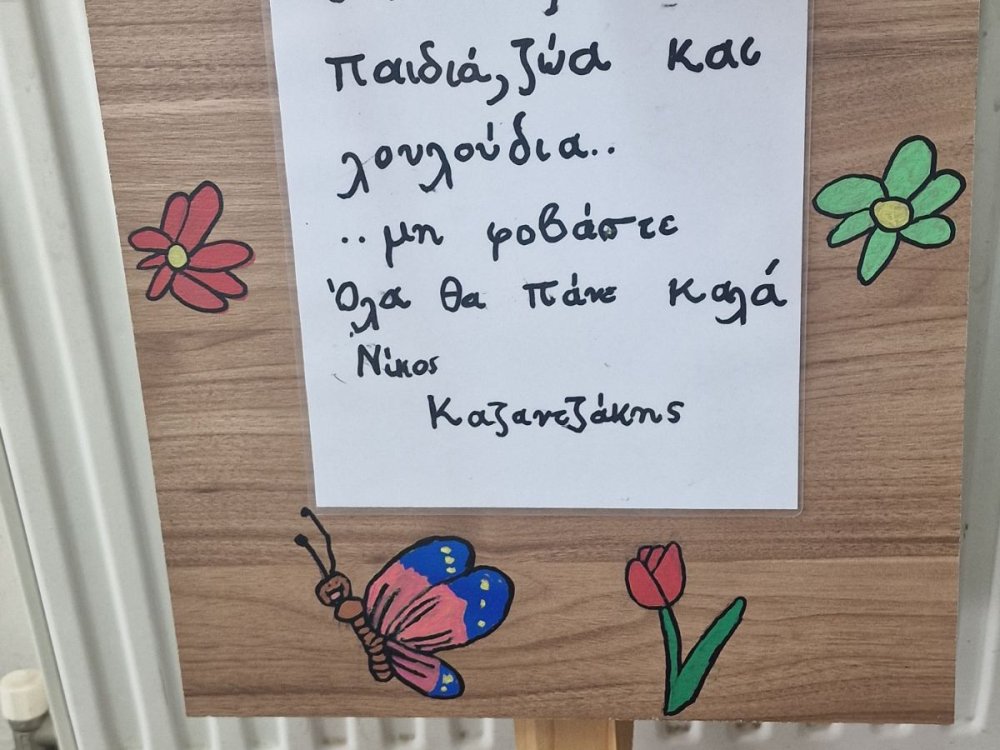 παιδιά, ζώα και
λουλούδια..
..μη φοβάστε
Όλα θα πάνε καλά
Νίκος
Καζαντζάκης